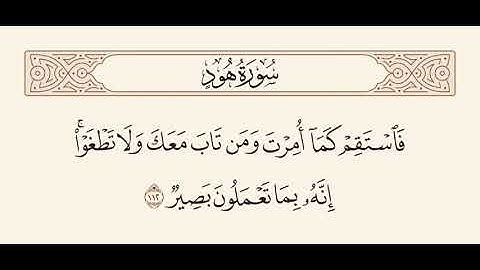 سُورَةُ هُودٍ
فَٱسۡتَقِمۡ كَمَآ أُمِرۡتَ وَمَن تَابَ مَعَكَ وَلَا تَطۡغَوۡاْۚ
إِنَّهُۥ بِمَا تَعۡمَلُونَ بَصِيرٞ ١١٢